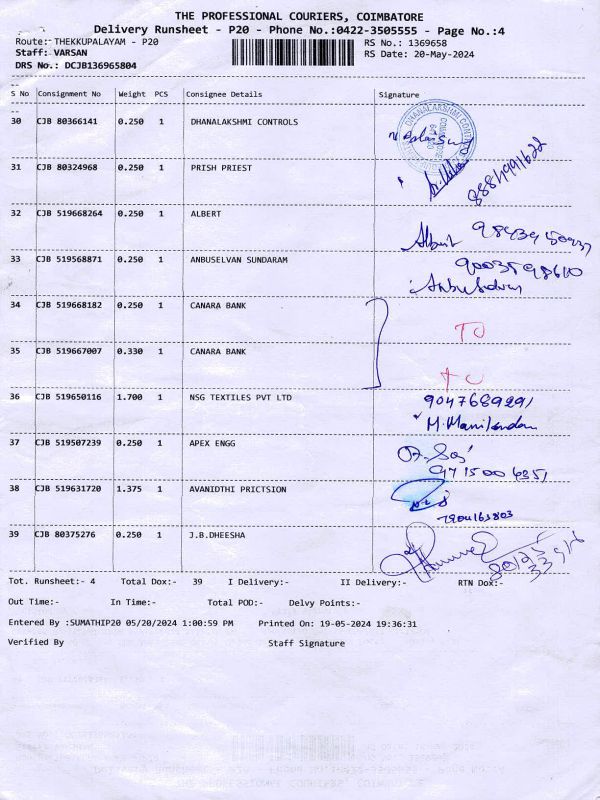 THE PROFESSIONAL COURIERS, COIMBATORE
Delivery Runsheet - P20 - Phone No.:0422-3505555 - Page No.:4
Route:- THEKKUPALAYAM - P20 RS No.: 1369658
Staff: VARSAN RS Date: 20-May-2024
DRS No.: DCJB136965804
S No Consignment No Weight PCS Consignee Details Signature
30 CJB 80366141 0.250 1 DHANALAKSHMI CONTROLS
31 CJB 80324968 0.250 1 PRISH PRIEST
32 CJB 519668264 0.250 1 ALBERT
Albert
33 CJB 519568871 0.250 1 ANBUSELVAN SUNDARAM 9003598610
34 CJB 519668182 0.250 1 CANARA BANK
TO
35 CJB 519667007 0.330 1 CANARA BANK
TO
36 CJB 519650116 1.700 1 NSG TEXTILES PVT LTD 9047689291
M. Manikandan
37 CJB 519507239 0.250 1 APEX ENGG
9715004351
38 CJB 519631720 1.375 1 AVANIDTHI PRICTSION
39 CJB 80375276 0.250 1 J.B.DHEESHA
Tot. Runsheet:- 4 Total Dox:- 39 I Delivery:- II Delivery:- RTN Dox:-
Out Time:- In Time:- Total POD:- Delvy Points:-
Entered By :SUMATHIP20 05/20/2024 1:00:59 PM Printed On: 19-05-2024 19:36:31
Verified By Staff Signature